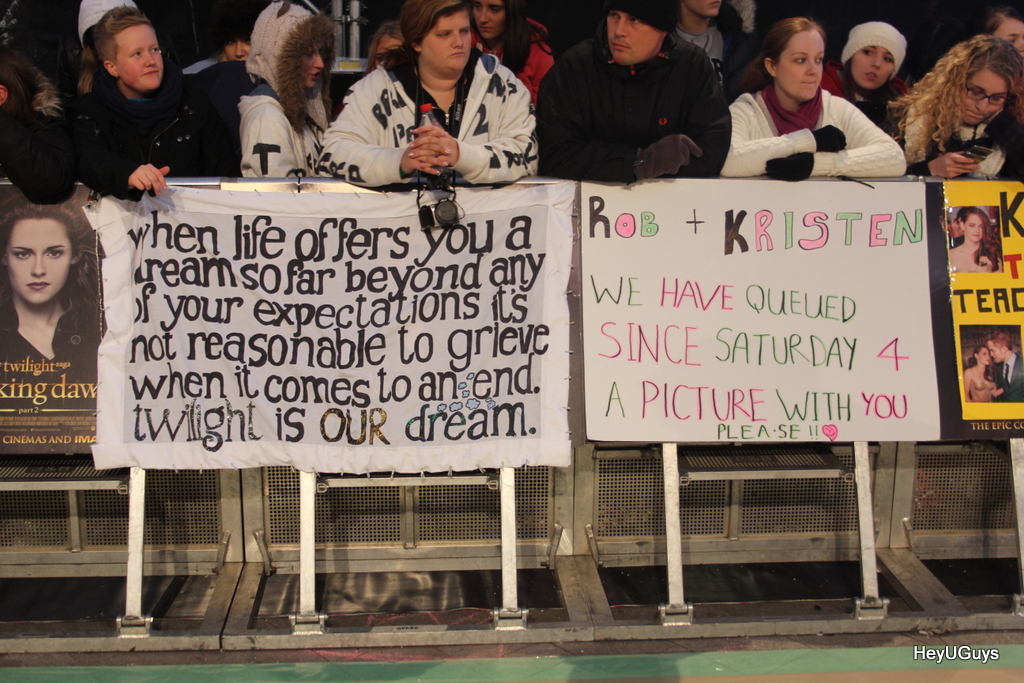 twilight saga
king daw
part 2
CINEMAS AND IMA
when life offers you a
dream so far beyond any
of your expectations it's
not reasonable to grieve
when it comes to an end.
twilight is OUR dream.
ROB + KRISTEN
WE HAVE QUEUED
SINCE SATURDAY 4
A PICTURE WITH YOU
PLEASE!!
K
T
TEAC
THE EPIC CO
HeyUGuys